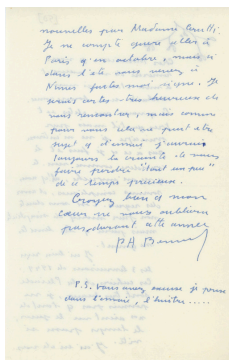 nouvelles pour Madame
Je ne compte guère aller à
Paris qu'en octobre, mais si
dans l'été vous venez à
faites moi signe. Je
serais certes très heureux de
vous rencontrer, mais comme
pour vous cela ne peut être
sujet d'ennui j'aurais
toujours la crainte de vous
faire perdre "tant soit peu"
de temps précieux.
Croyez bien que mon
cœur ne vous oubliera
pas durant cette année
P.S. vous avez excusé je pense
dans l'envoi, l'huître.....